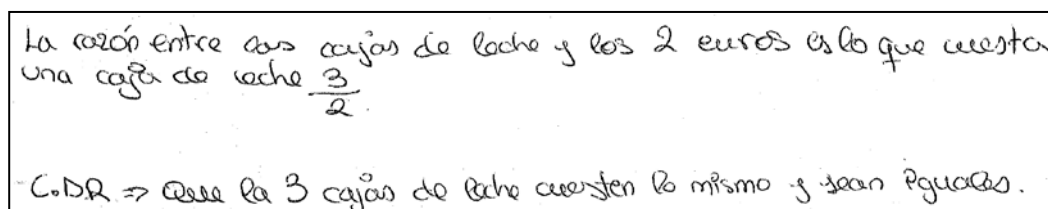 La razón entre las cajas de leche y los 2 euros es lo que cuesta
una caja de leche 3/2.
C.D.R => Que la 3 cajas de leche cuesten lo mismo y sean iguales.